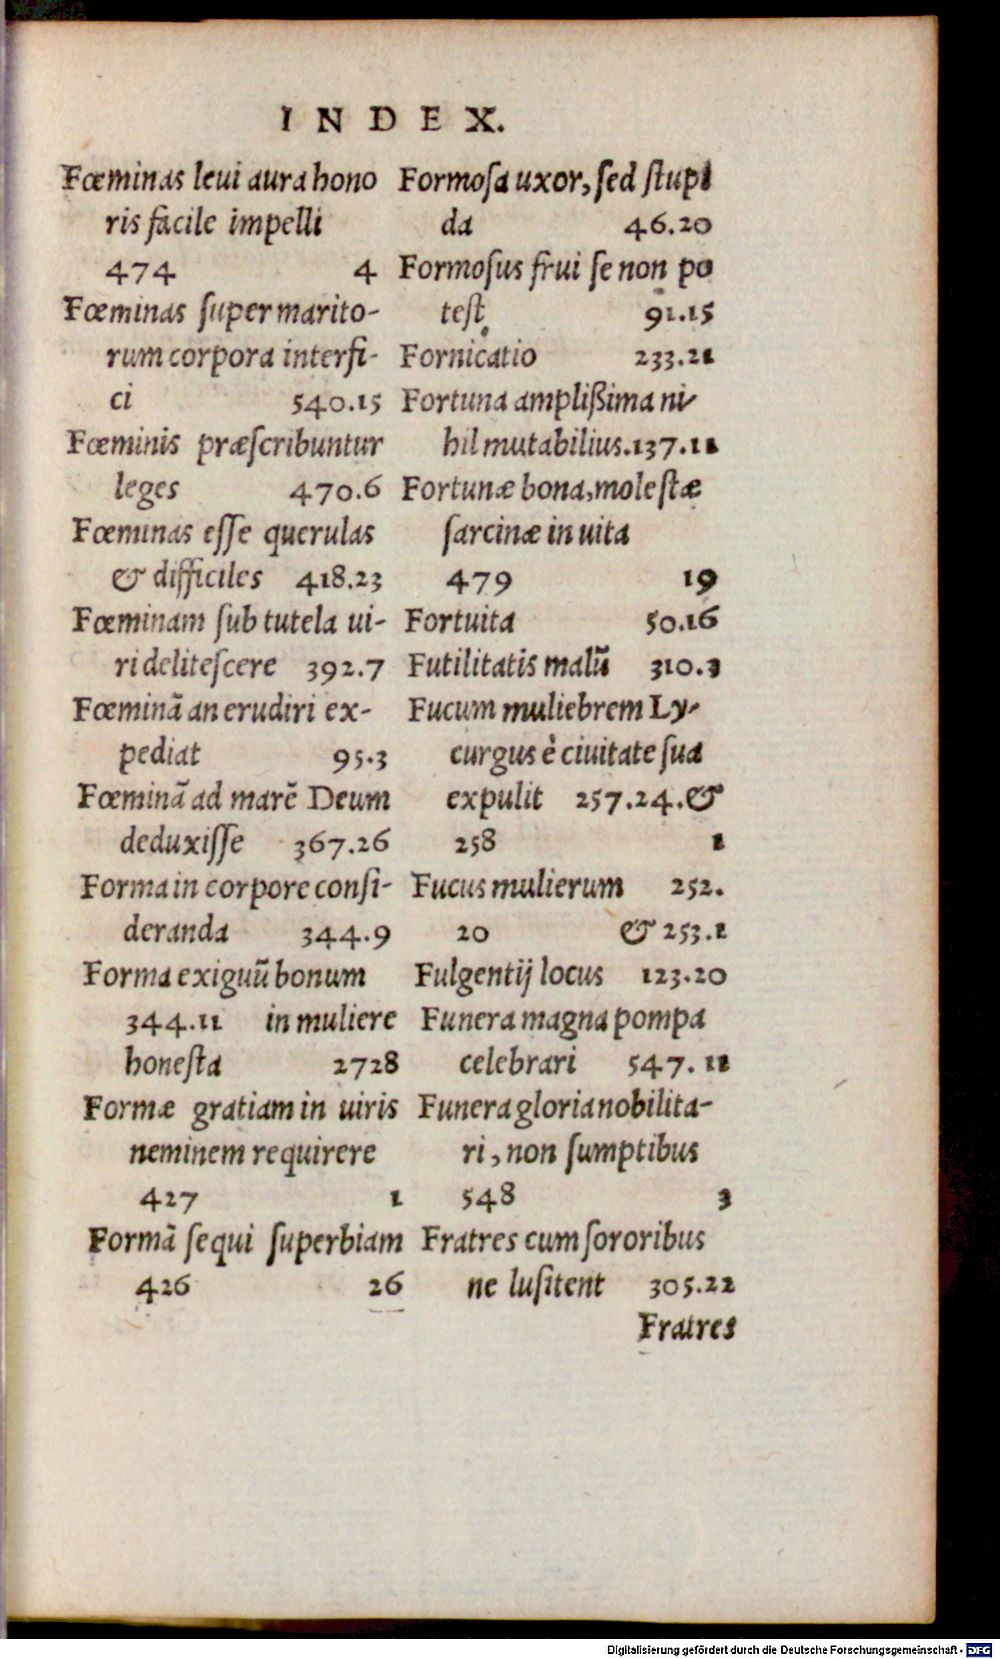 INDEX.
Fœminas leui aura hono
ris facile impelli
474 4
Fœminas super marito-
rum corpora interfi-
ci 540.15
Fœminis præscribuntur
leges 470.6
Fœminas esse querulas
& difficiles 418.23
Fœminam sub tutela ui-
ri delitescere 392.7
Fœminā an erudiri ex-
pediat 95.3
Fœminā ad marē Deum
deduxisse 367.26
Forma in corpore consi-
deranda 344.9
Forma exiguū bonum
344.11 in muliere
honesta 2728
Formæ gratiam in uiris
neminem requirere
427 1
Formā sequi superbiam
426 26
Formosa uxor, sed stupi
da 46.20
Formosus frui se non po
test 91.15
Fornicatio 233.21
Fortuna amplißima ni-
hil mutabilius. 137.11
Fortunæ bona, molestæ
sarcinæ in uita
479 19
Fortuita 50.16
Futilitatis malū 310.3
Fucum muliebrem Ly-
curgus è ciuitate sua
expulit 257.24. &
258 1
Fucus mulierum 252.
20 & 253.1
Fulgentij locus 123.20
Funera magna pompa
celebrari 547. 11
Funera gloria nobilita-
ri, non sumptibus
548 3
Fratres cum sororibus
ne lusitent 305.22
Fratres
Digitalisierung gefördert durch die Deutsche Forschungsgemeinschaft - DFG